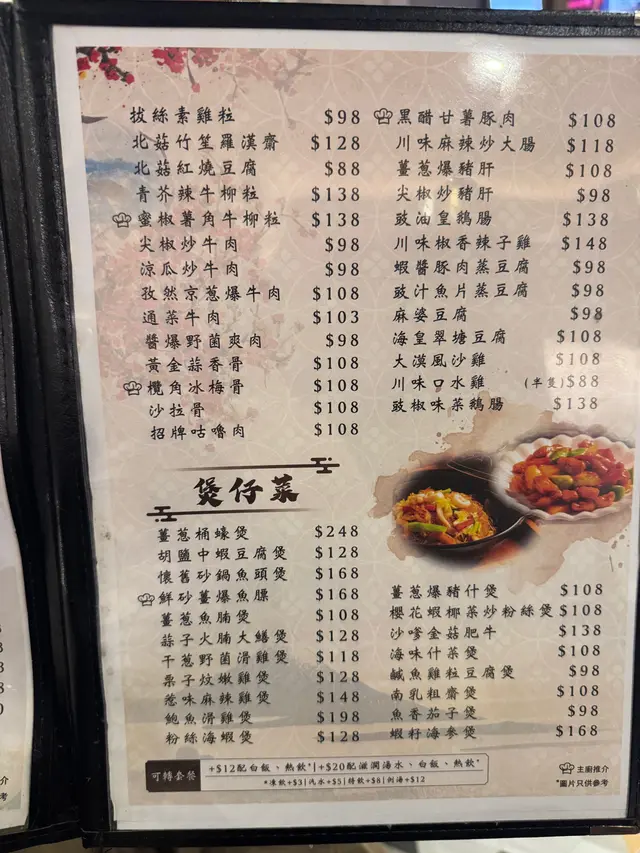 拔絲素雞粒 $98
北菇竹笙羅漢齋 $128
北菇紅燒豆腐 $88
青芥辣牛柳粒 $138
蜜椒薯角牛柳粒 $138
尖椒炒牛肉 $98
涼瓜炒牛肉 $98
孜然京蔥爆牛肉 $108
通菜牛肉 $103
醬爆野菌爽肉 $98
黃金蒜香骨 $108
欖角冰梅骨 $108
沙拉骨 $108
招牌咕嚕肉 $108
黑醋甘薯豚肉 $108
川味麻辣炒大腸 $118
薑蔥爆豬肝 $108
尖椒炒豬肝 $98
豉油皇鵝腸 $138
川味椒香辣子雞 $148
蝦醬豚肉蒸豆腐 $98
豉汁魚片蒸豆腐 $98
麻婆豆腐 $98
海皇翠塘豆腐 $108
大漠風沙雞 $108
川味口水雞 (半隻)$88
豉椒味菜鵝腸 $138
煲仔菜
薑蔥桶蠔煲 $248
胡鹽中蝦豆腐煲 $128
懷舊砂鍋魚頭煲 $168
鮮砂薑爆魚膘 $168
薑蔥魚腩煲 $108
蒜子火腩大鱔煲 $128
干蔥野菌滑雞煲 $118
栗子炆嫩雞煲 $128
惹味麻辣雞煲 $148
鮑魚滑雞煲 $198
粉絲海蝦煲 $128
薑蔥爆豬什煲 $108
櫻花蝦椰菜炒粉絲煲 $108
沙嗲金菇肥牛 $138
海味什菜煲 $108
鹹魚雞粒豆腐煲 $98
南乳粗齋煲 $108
魚香茄子煲 $98
蝦籽海參煲 $168
可轉套餐
+$12配白飯、熱飲*|+$20配滋潤湯水、白飯、熱飲*
*凍飲+$3|汽水+$5|特飲+$8|例湯+$12
主廚推介
*圖片只供參考